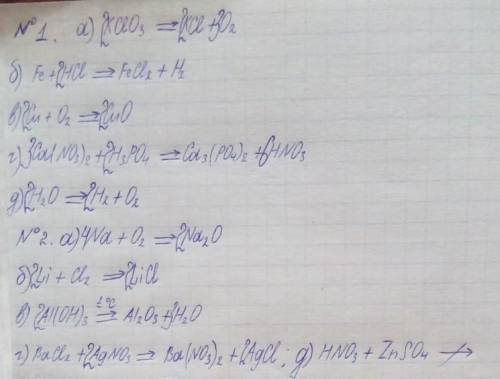 №1. а) 2KClO₃ ⇒ 2KCl + 3O₂
б) Fe + 2HCl ⇒ FeCl₂ + H₂
в) 2Cu + O₂ ⇒ 2CuO
г) 3Ca(NO₃)₂ + 2H₃PO₄ ⇒ Ca₃(PO₄)₂ + 6HNO₃
д) 2H₂O ⇒ 2H₂ + O₂
№2. а) 4Na + O₂ ⇒ 2Na₂O
б) 2Li + Cl₂ ⇒ 2LiCl
в) 2Al(OH)₃ t°C ⇒ Al₂O₃ + 3H₂O
г) BaCl₂ + 2AgNO₃ ⇒ Ba(NO₃)₂ + 2AgCl; д) HNO₃ + ZnSO₄ ↛